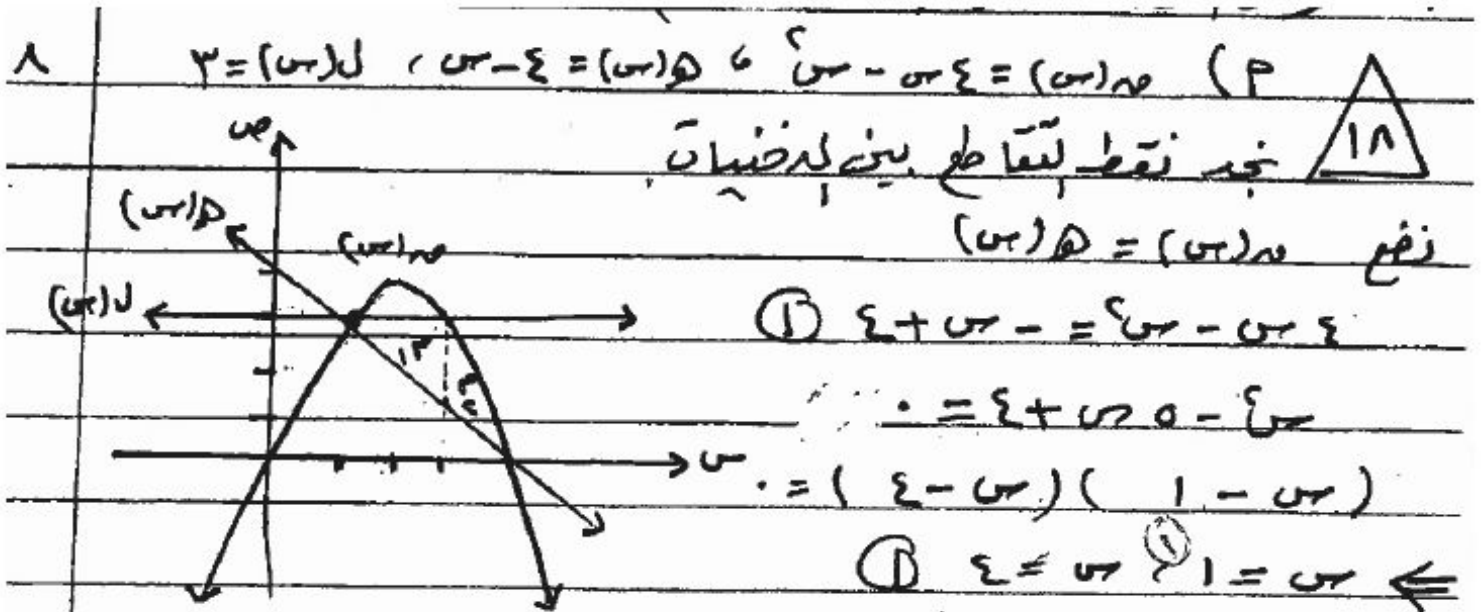 ٨
١٨
م) ن(س) = ٤س - س٢ ، ھ(س) = ٤ - س ، ل(س) = ٣
نجد نقط التقاطع بين المنحنيات
نضع ن(س) = ھ(س)
٤س - س٢ = - س + ٤ ①
س٢ - ٥س + ٤ = ٠
(س - ١)(س - ٤) = ٠
⇐ س = ١ ① ، س = ٤ ①
ص
ھ(س)
ن(س)
ل(س)
م١
م٢
س